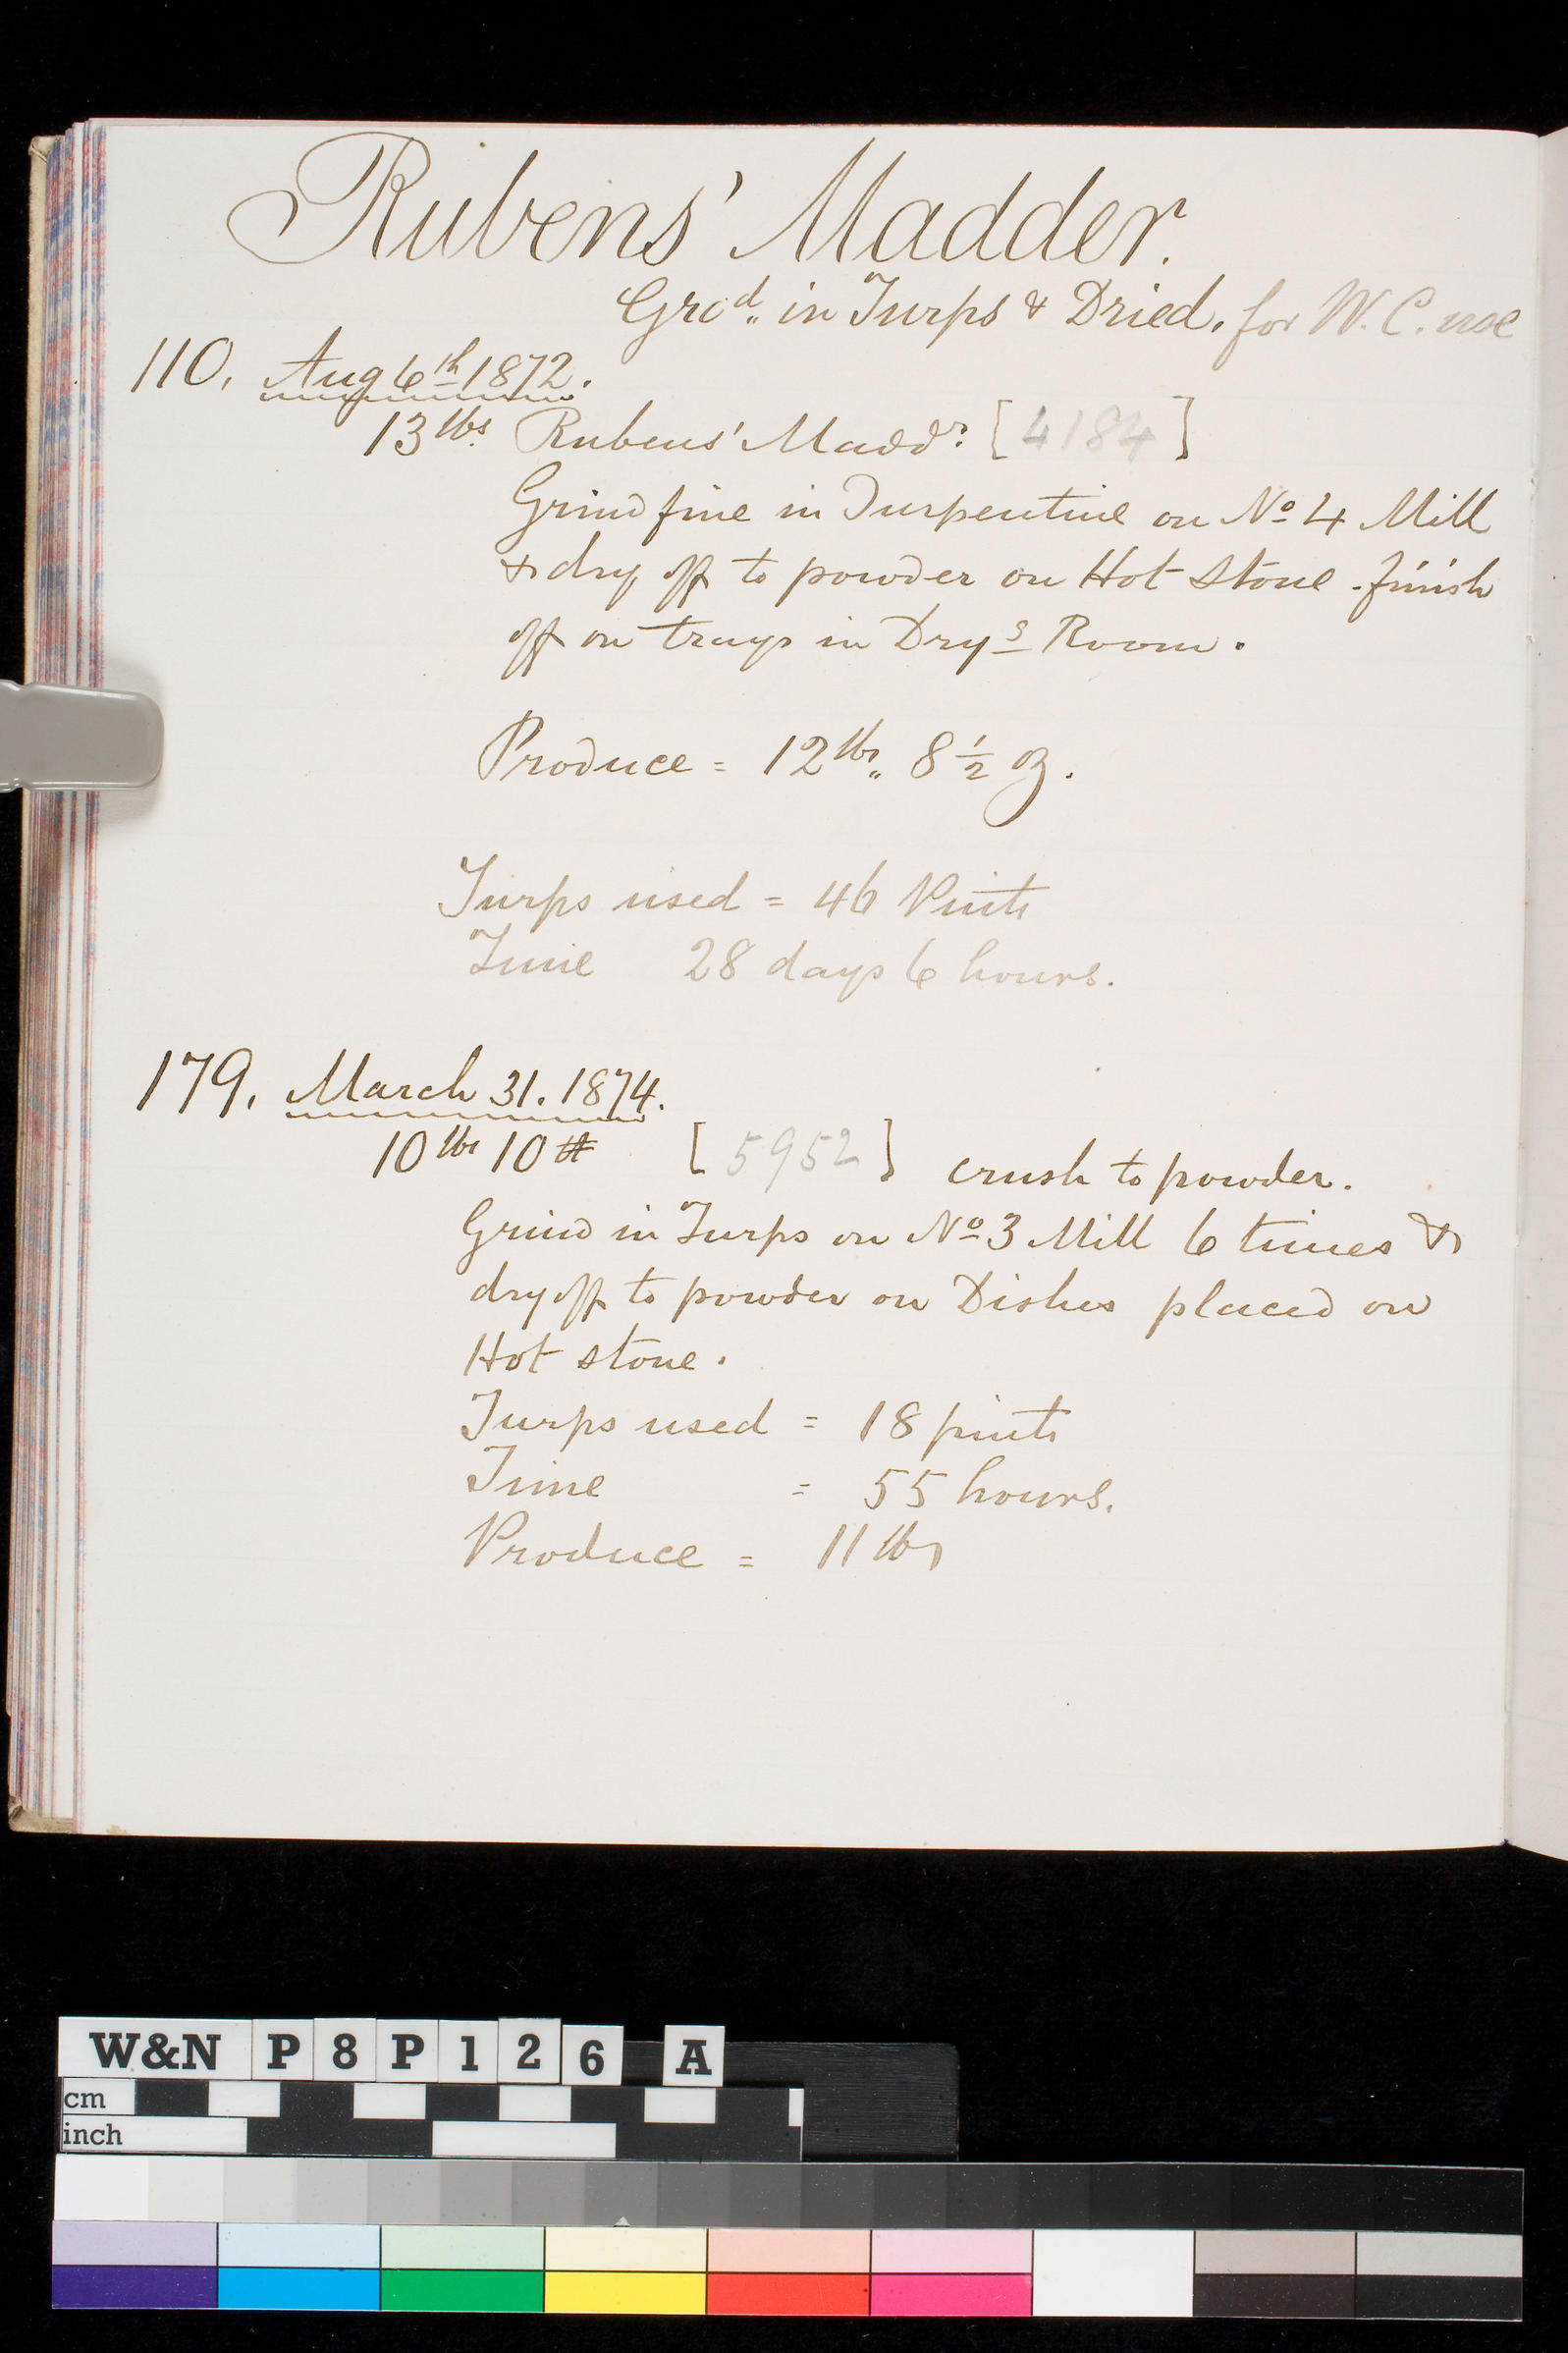 Rubens' Madder.
Gro.d in Turps & Dried. for W. C. use
110. Aug 6th 1872.
13 lbs. Rubens' Maddr. [4184]
Grind fine in Turpentine on No 4 Mill
& dry off to powder on Hot Stone . finish
off on trays in Dryg Room.
Produce = 12 lbs. 8 1/2 oz.
Turps used = 46 Pints
Time 28 days 6 hours.
179. March 31. 1874.
10 lbs 10 [5952] crush to powder.
Grind in Turps on No 3 Mill 6 times &
dry off to powder on Dishes placed on
Hot stone.
Turps used = 18 pints
Time = 55 hours.
Produce = 11 lbs
W&N P 8 P 1 2 6 A
cm
inch